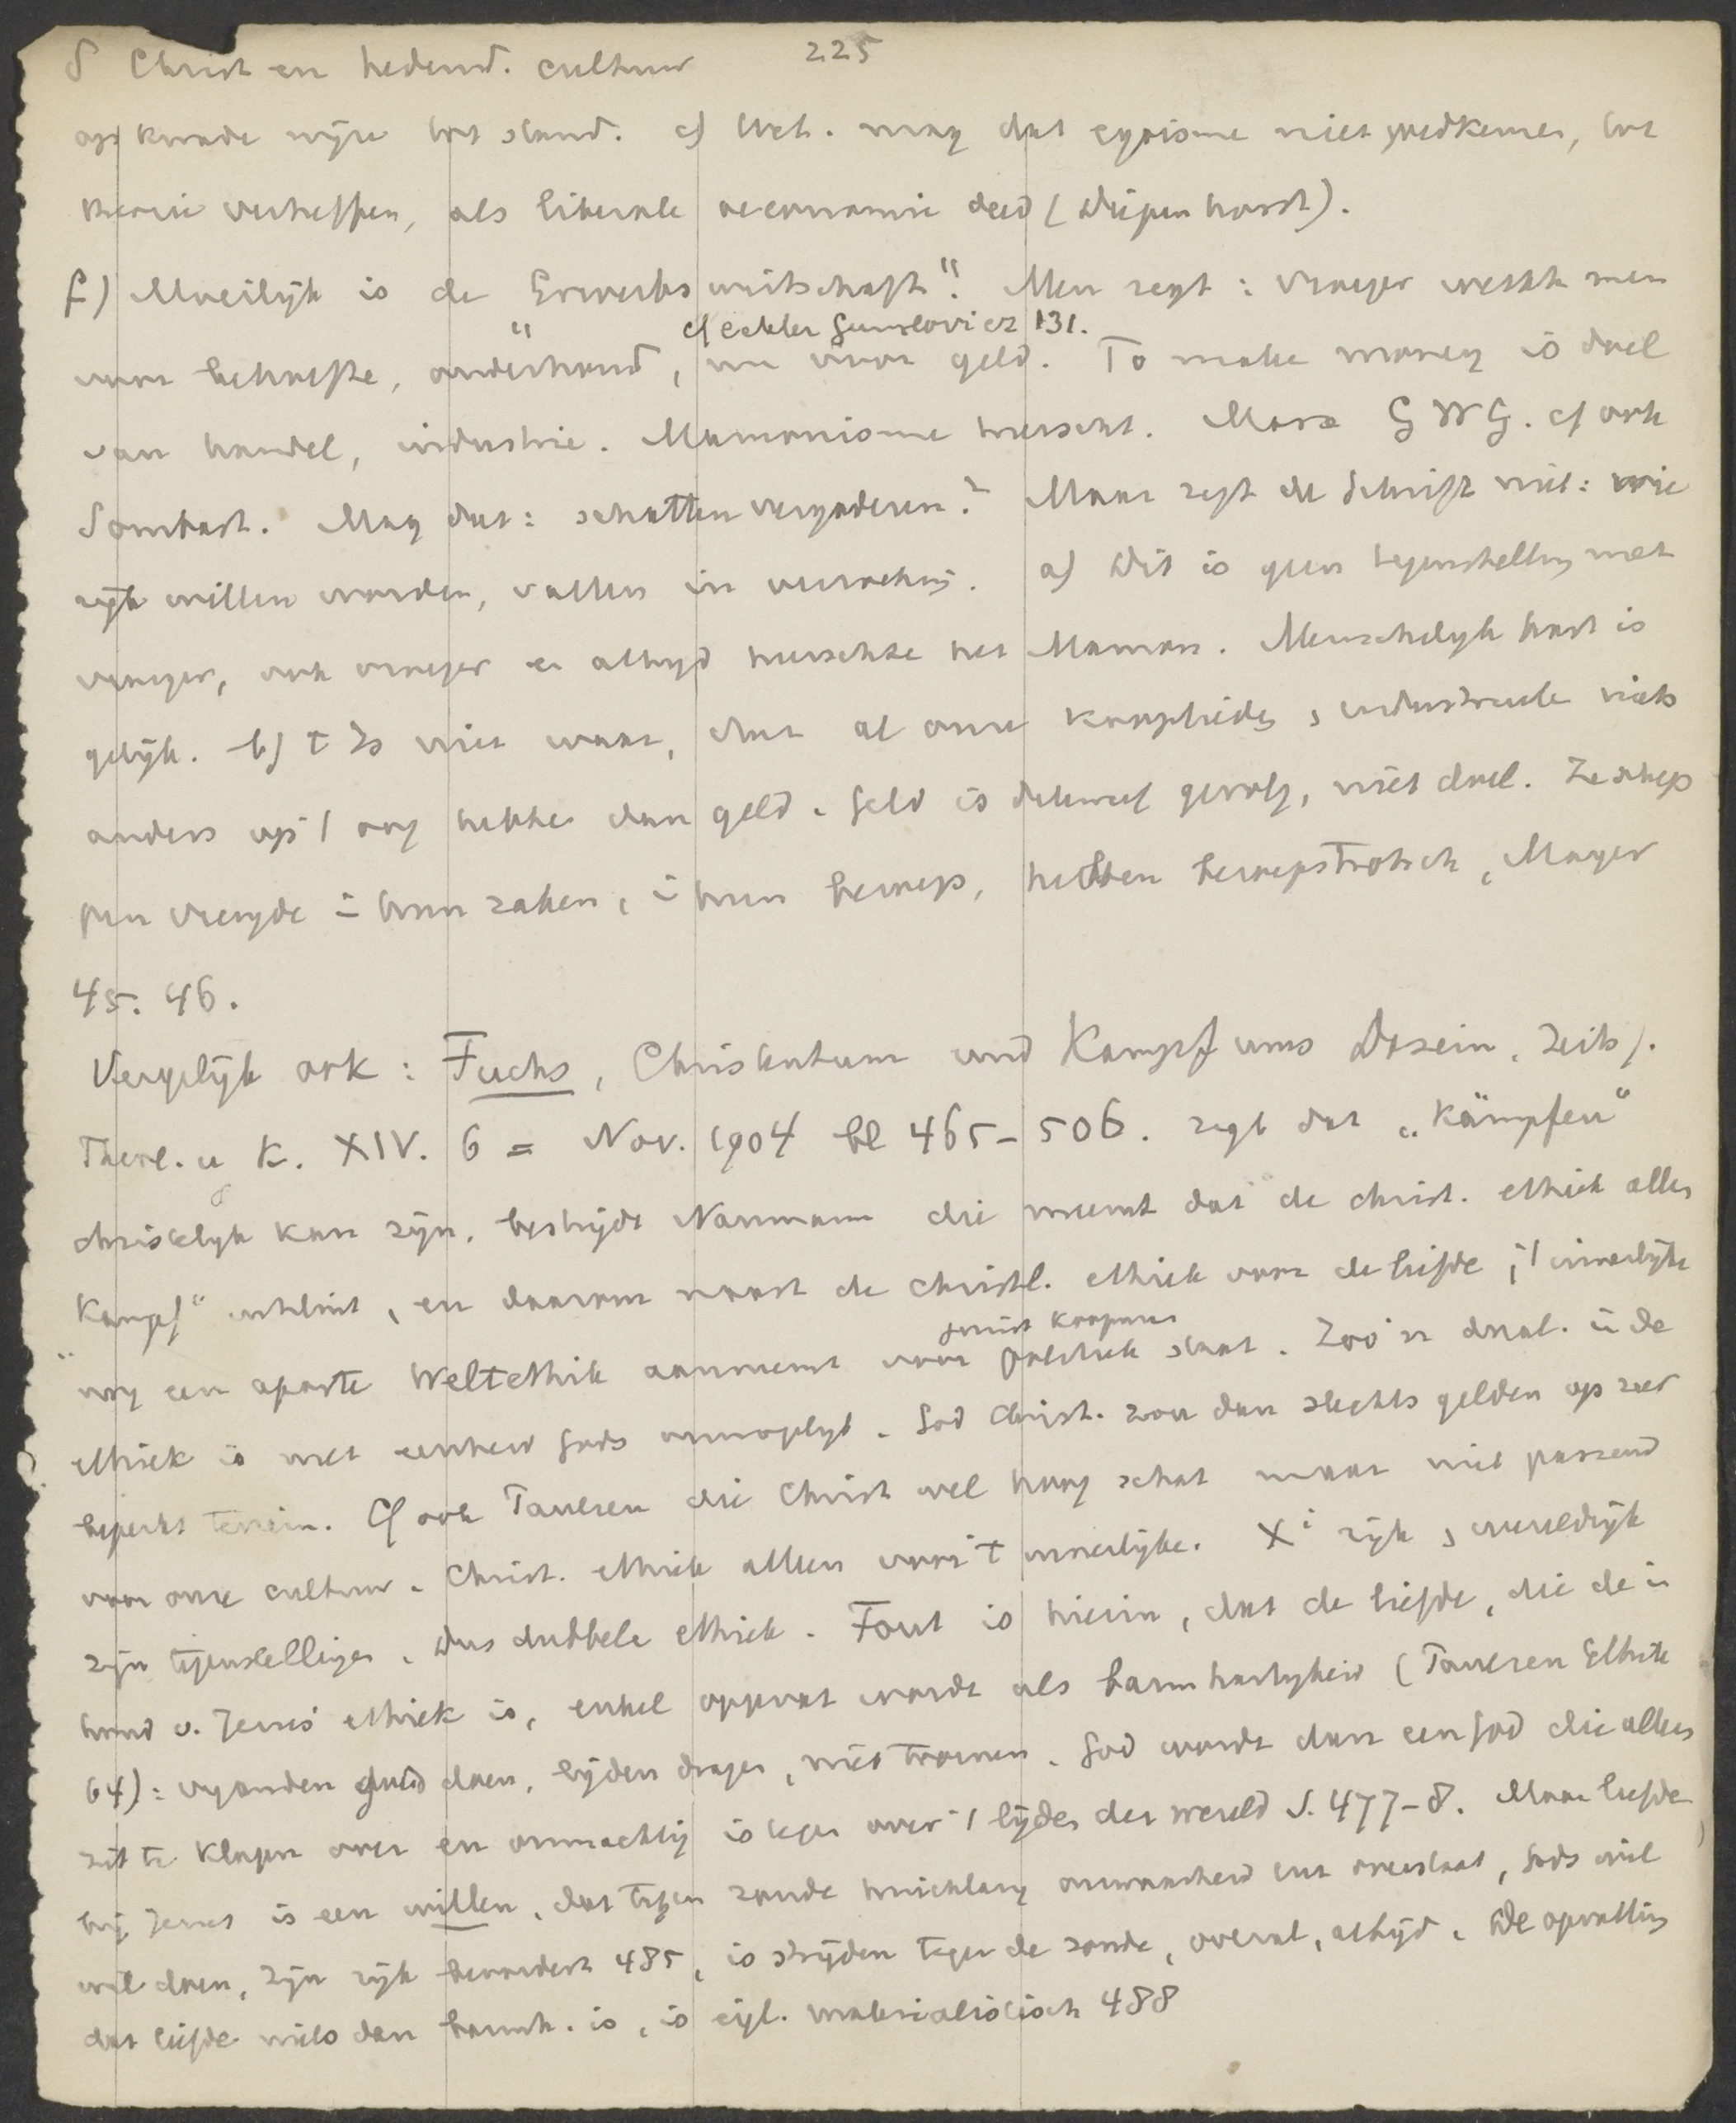 § Christ en hedend. cultuur 225
op kwade wijze tot stand. c) Wet. mag dat egoisme niet goedkeuren, tot
theorie verheffen, als liberale oeconomie deed (Diepenhorst).
f) Moeilijk is de "Erwerbswirtschaft". Men zegt: vroeger werkte men
cf eckler Gumplovicz 131.
voor behoefte, onderhoud, nu voor geld. To make money is doel
van handel, industrie. Mamonisme heerscht. Marx G W G. cf ook
Sombart. Mag dat: schatten vergaderen? Maar zegt de Schrift niet: wie
rijk willen worden, vallen in verzoeking. a) Dit is geen tegenstelling met
vroeger, ook vroeger en altijd heerschte het Mamon. Menschelijk hart is
gelijk. b) t Is niet waar, dat al onze kooplieden, industrieele niets
anders op 't oog hebben dan geld. Geld is dikwijls gevolg, niet doel. Ze schep
pen vreugde in hun zaken, in hun beroep, hebben beroepstrots, Mayer
45. 46.
Vergelijk ook: Fuchs, Christentum und Kampf ums Dasein, Zeits f.
Theol. u K. XIV. 6 = Nov. 1904 bl 465-506. zegt dat "kämpfen"
christelijk kan zijn, bestrijdt Naumann die meent dat de christ. ethiek allen
"Kampf" uitsluit, en daarom naast de christl. ethiek voor de liefde, 't innerlijke
juist koopman
nog een aparte Weltethik aanneemt voor politiek staat. Zoo'n dual. in de
ethiek is met eenheid Gods onmogelijk. God Christ. zou dan slechts gelden op zeer
beperkt terrein. Cf ook Paulsen die Christ wel hoog schat maar niet passend
voor onze cultuur. Christ. ethiek alleen voor 't innerlijke. Xi rijk, wereldrijk
zijn tegenstellingen. Dus dubbele ethiek. Fout is hierin, dat de liefde, die de in
houd v. Jezus' ethiek is, enkel opgevat wordt als barmhartigheid (Paulsen Ethik
64): vijanden goed doen, lijden dragen, niet toornen. God wordt dan een God die alleen
zit te klagen over en onmachtig is tegenover 't lijden der wereld S. 477-8. Maar liefde
bij Jezus is een willen, dat tegen zonde huichelarij onwaarheid enz overstaat, Gods wil
wil doen, zijn rijk bevordert 485, is strijden tegen de zonde, overal, altijd. De opvatting
dat liefde niets dan barmh. is, is eigl. materialistisch 488